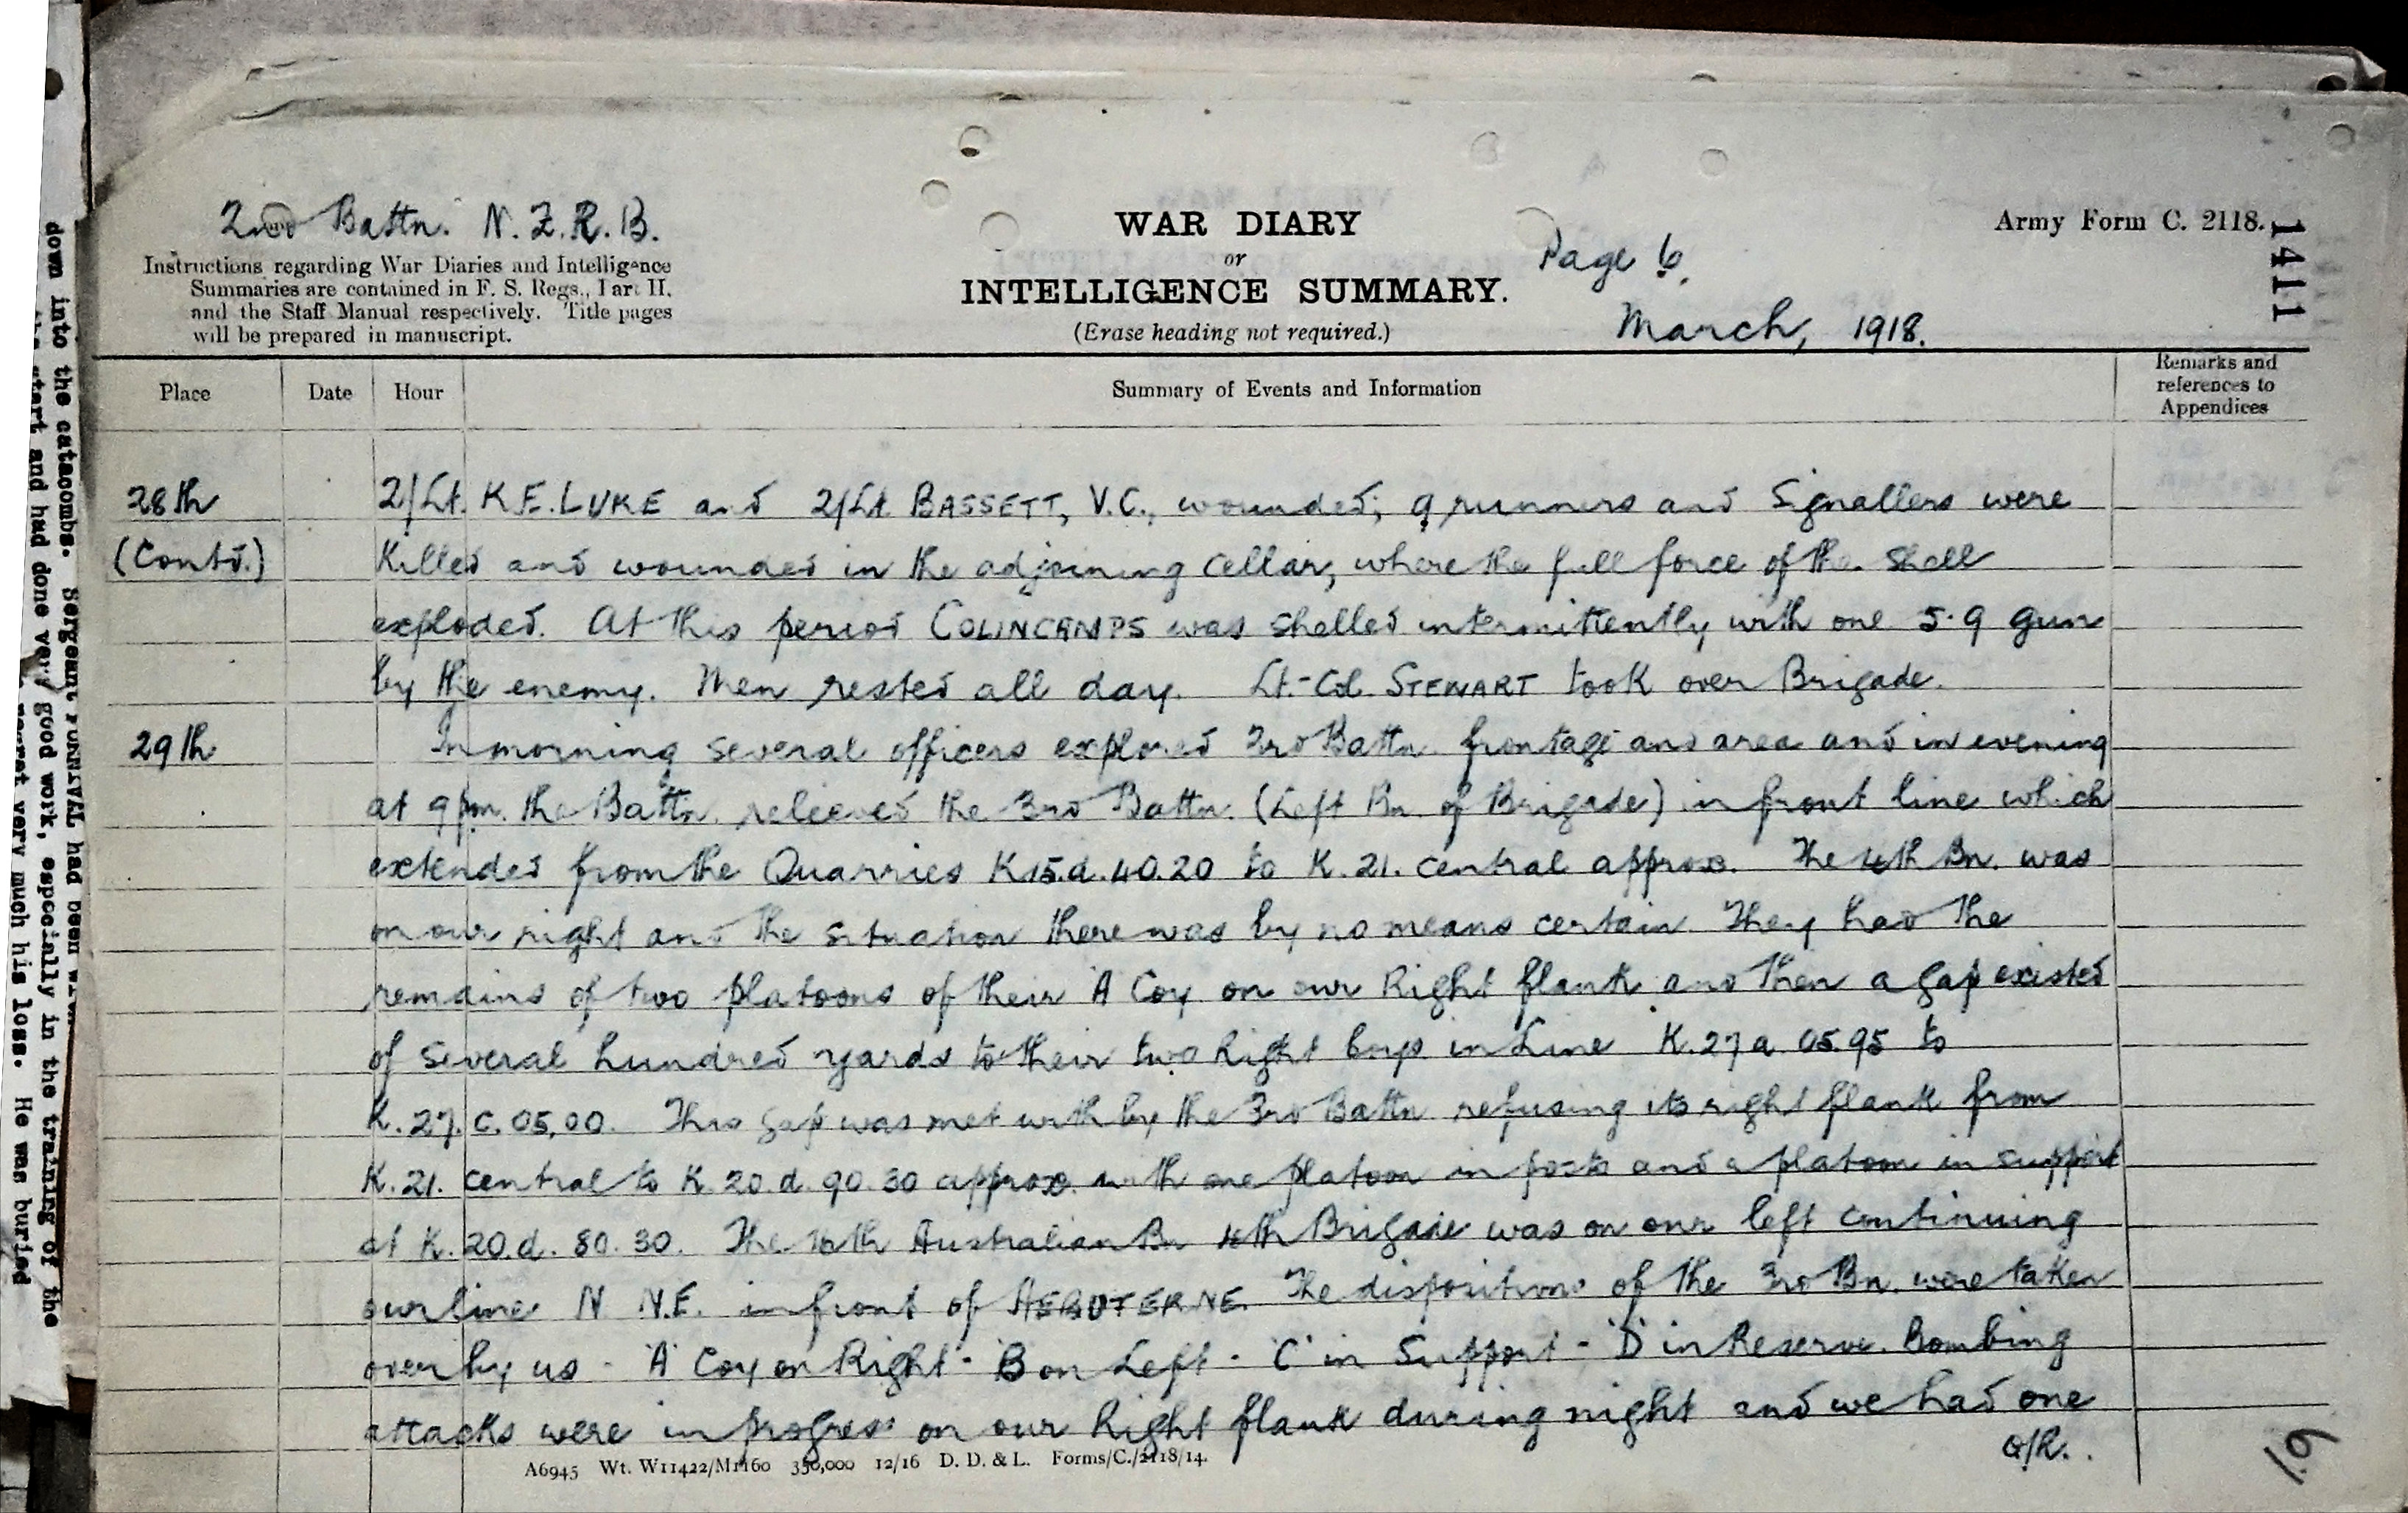 2nd Battn. N.Z.R.B.
Instructions regarding War Diaries and Intelligence
Summaries are contained in F. S. Regs., Part II.
and the Staff Manual respectively. Title pages
will be prepared in manuscript.
WAR DIARY
or
INTELLIGENCE SUMMARY.
(Erase heading not required.)
Page 6.
March, 1918.
Army Form C. 2118.
1411
Place Date Hour Summary of Events and Information Remarks and
references to
Appendices
28th 2/Lt. K.E. LUKE and 2/Lt. BASSETT, V.C., wounded; 9 runners and Signallers were
(Contd.) Killed and wounded in the adjoining cellar, where the full force of the shell
exploded. At this period COLINCAMPS was shelled intermittently with one 5.9 gun
by the enemy. Men rested all day. Lt.-Col. STEWART took over Brigade.
29th In morning several officers explored 3rd Battn. frontage and area and in evening
at 9pm. the Battn. relieved the 3rd Battn. (Left Bn. of Brigade) in front line which
extended from the Quarries K15.d.40.20 to K.21. central approx. The 4th Bn. was
on our right and the situation there was by no means certain. They had the
remains of two platoons of their 'A' Coy on our Right flank and then a gap existed
of several hundred yards to their two Right Coys in Line K.27 a 05.95 to
K.27.c.05,00. This gap was met with by the 3rd Battn refusing its right flank from
K.21. central to K.20.d.90.30 approx. with one platoon in posts and a platoon in support
at K.20.d.80.30. The 16th Australian Bn 4th Brigade was on our left continuing
our line N N.E. in front of HEBUTERNE. The dispositions of the 3rd Bn. were taken
over by us - 'A' Coy on Right - 'B' on Left - 'C' in Support - 'D' in Reserve. Bombing
attacks were in progress on our Right flank during night and we had one
O/R..
A6945 Wt. W11422/M1160 350,000 12/16 D. D. & L. Forms/C./2118/14.
19
down into the catacombs. Sergeant had been
start and had done very good work, especially in the training of the
regret very much his loss. He was buried